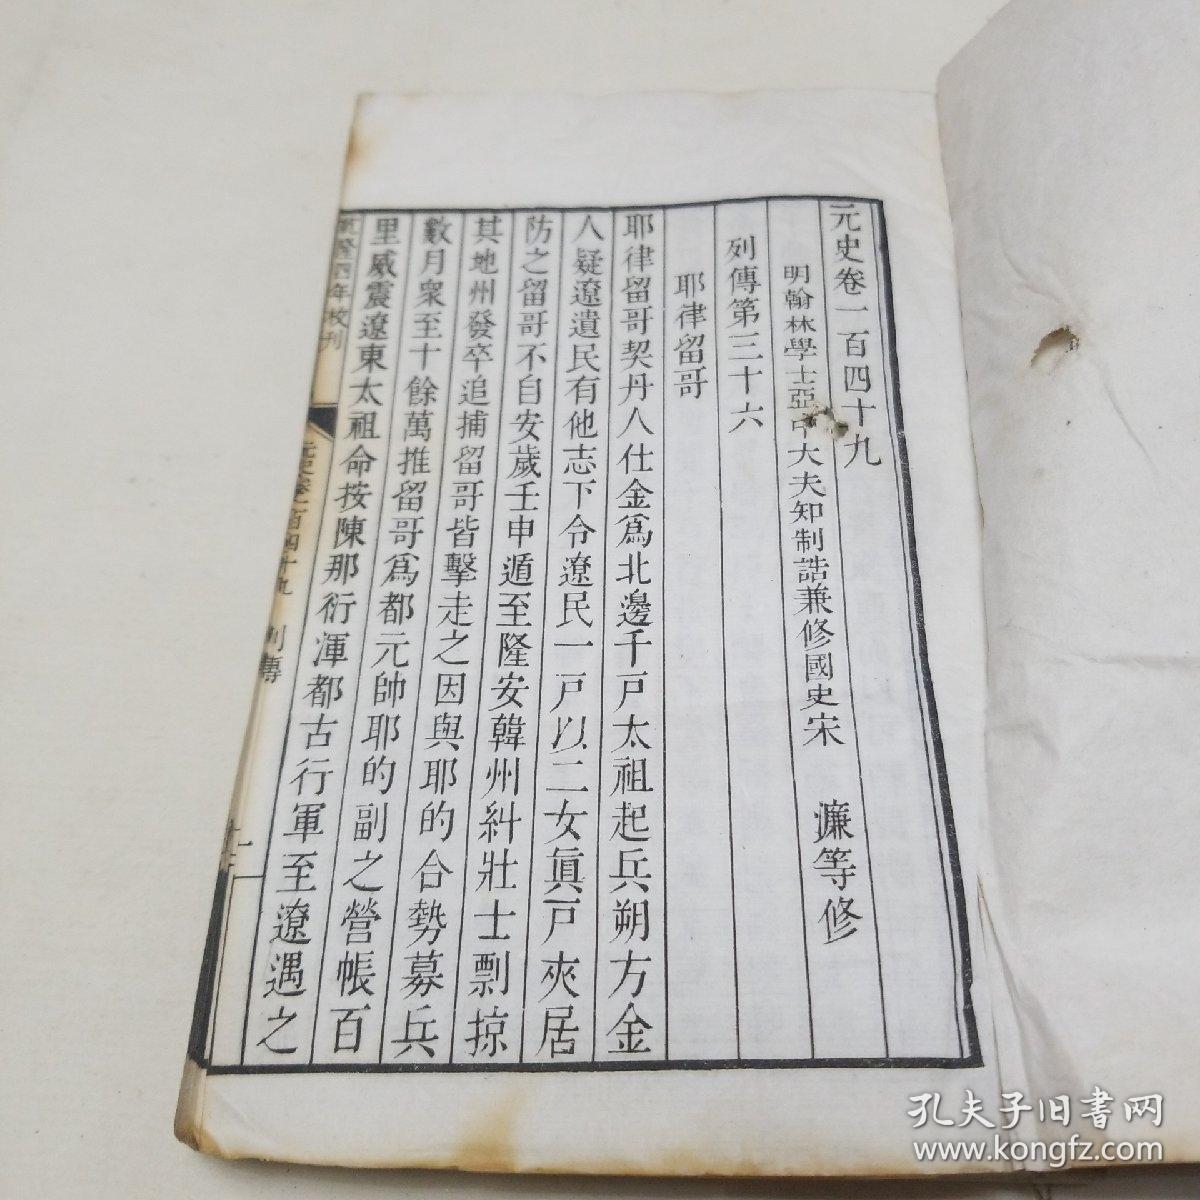 元史卷一百四十九
明翰林學士亞中大夫知制誥兼修國史宋　濂等修
列傳第三十六
耶律留哥
耶律留哥契丹人仕金爲北邊千戸太祖起兵朔方金
人疑遼遺民有他志下令遼民一戸以二女眞戸夾居
防之留哥不自安歲壬申遁至隆安韓州糾壯士剽掠
其地州發卒追捕留哥皆擊走之因與耶的合勢募兵
數月衆至十餘萬推留哥爲都元帥耶的副之營帳百
里威震遼東太祖命按陳那衍渾都古行軍至遼遇之
乾隆四年校刊
元史卷一百四十九
列傳
一
孔夫子旧书网
www.kongfz.com